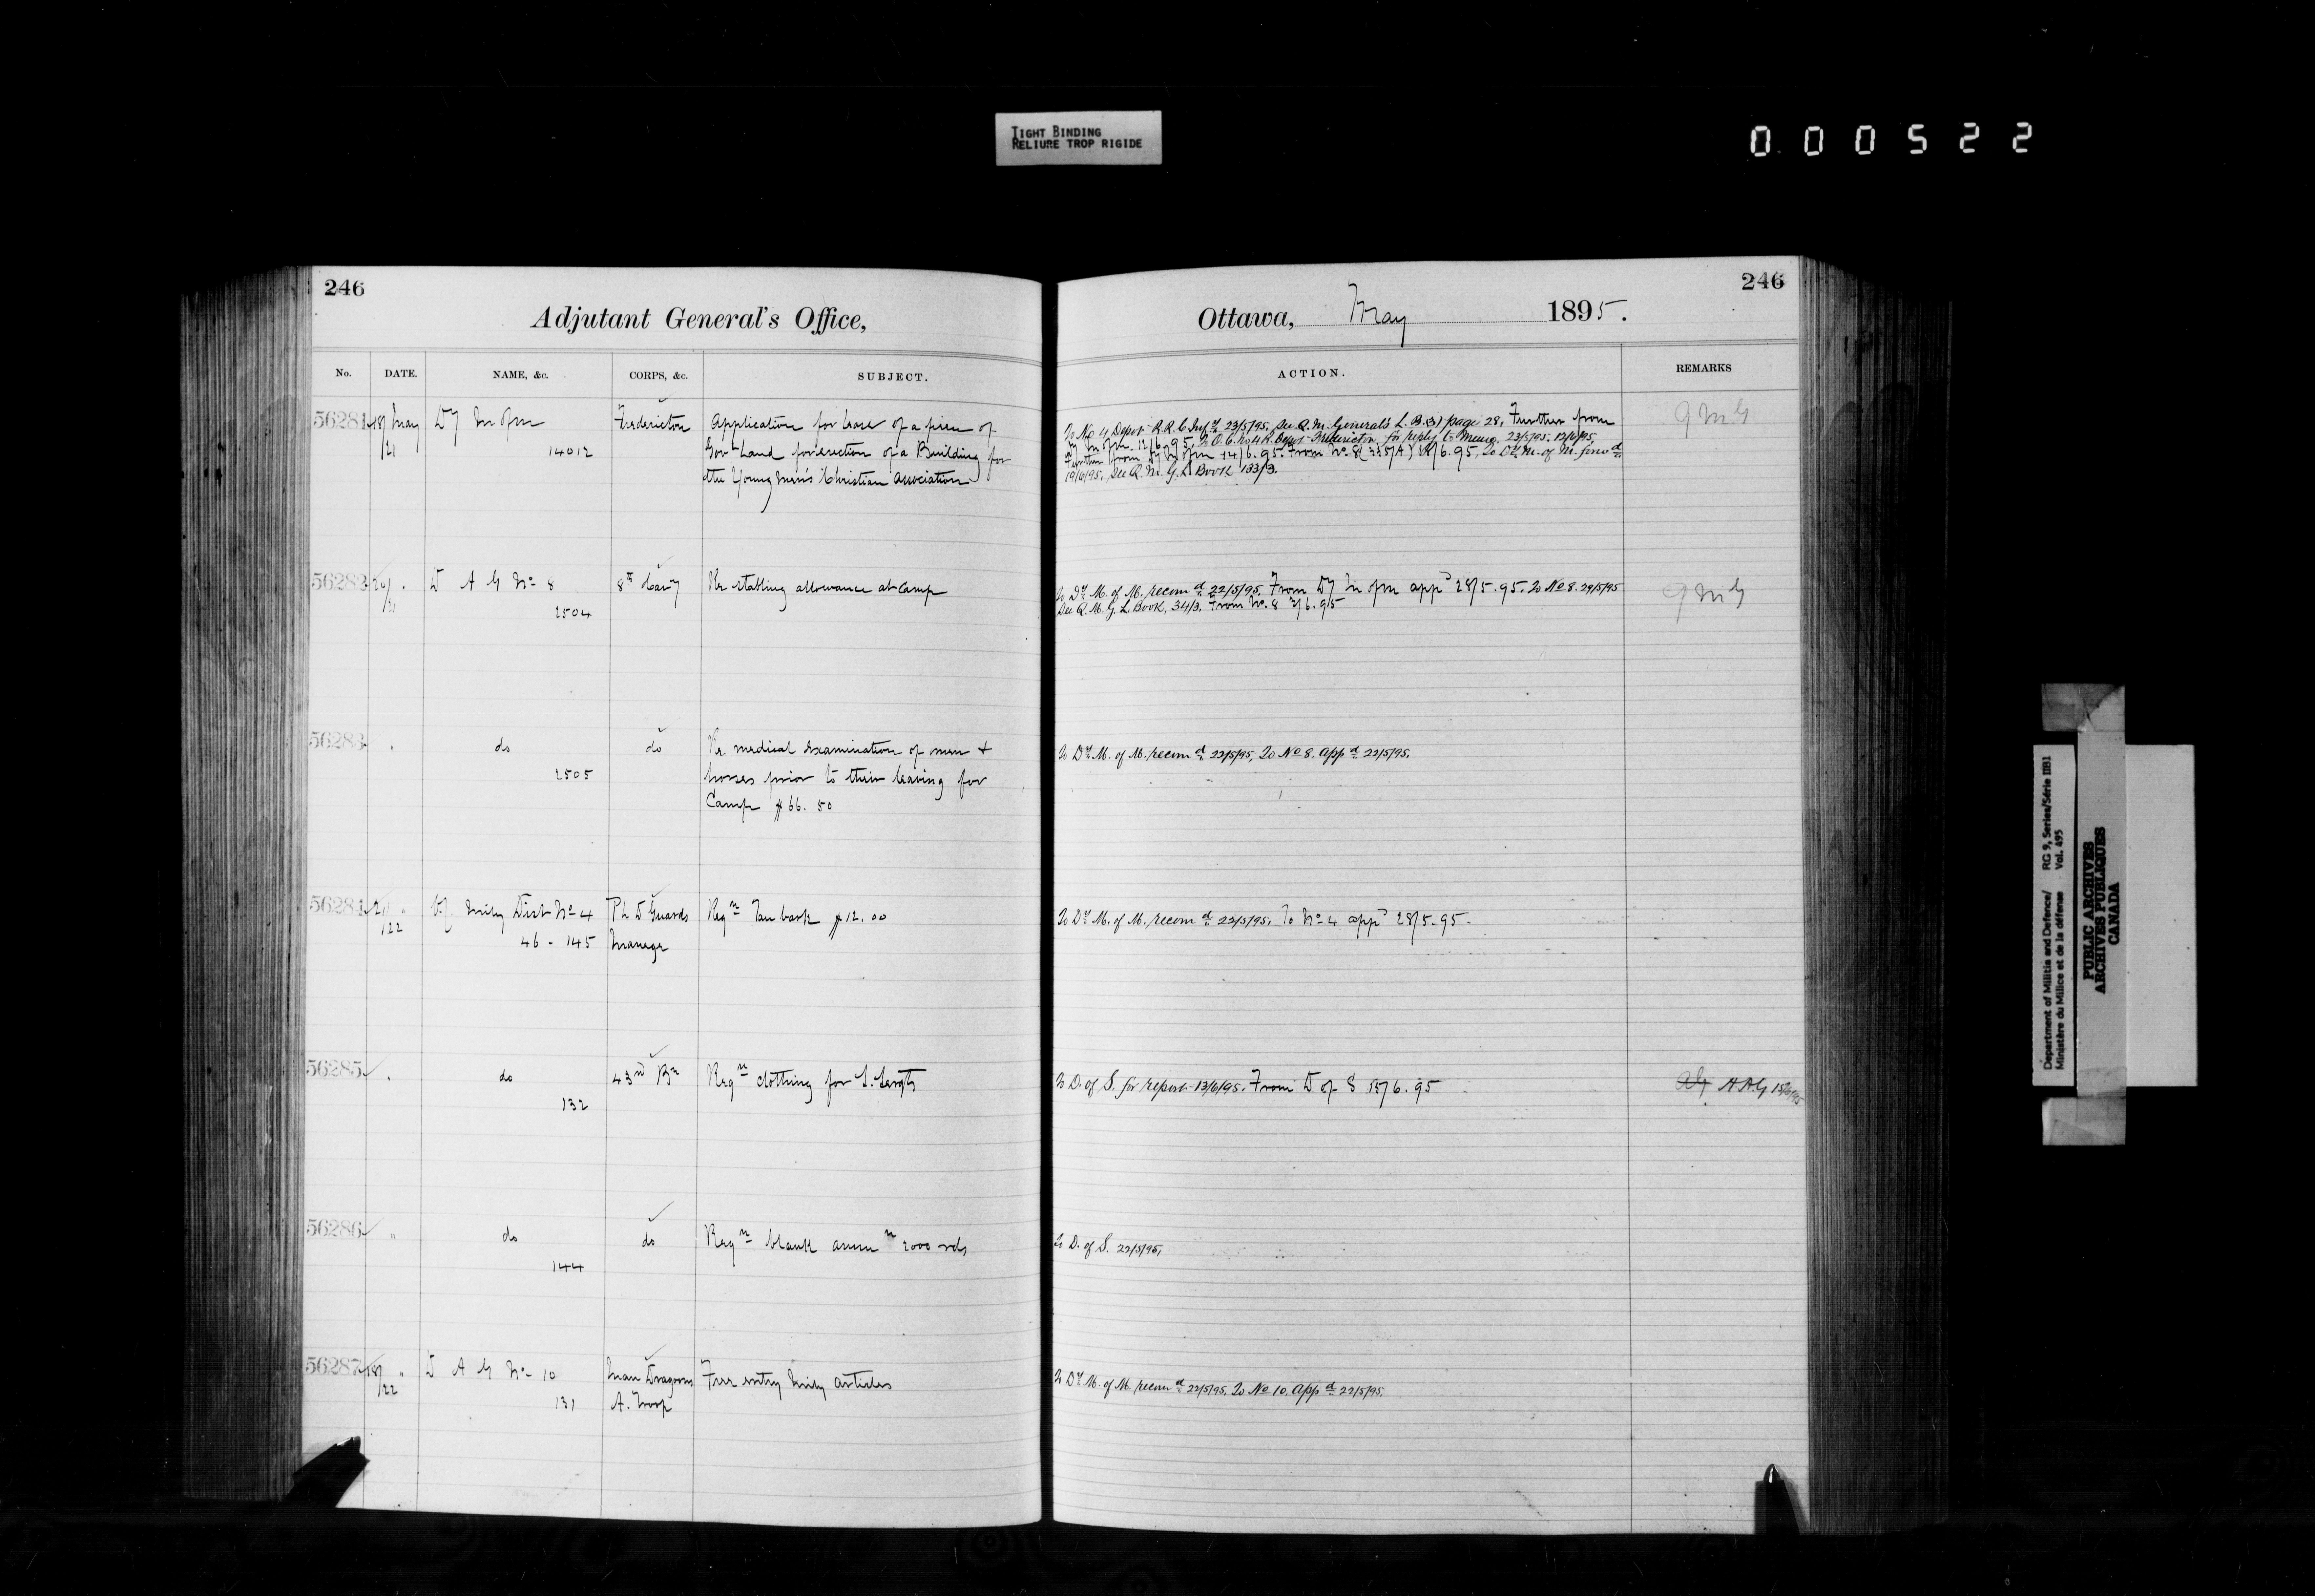 TIGHT BINDING
RELIURE TROP RIGIDE
000522
246
Adjutant General's Office,
No. DATE. NAME, &c. CORPS, &c. SUBJECT.
56281 18/ May Dy M of M Fredericton Application for lease of a piece of
/21 14012 Gov't Land for erection of a Building for
the Young Men's Christian Association
56282 20/ " D A G No 8 8th Cav'y Re stabling allowance at Camp
/21 2504
56283 " do do Re medical examination of men +
2505 horses prior to their leaving for
Camp $66.50
56284 21/ " Mily Dist No 4 P.L.D Guards Reqn Tan bark $12.00
/22 46 - 145 Manege
56285 " do 43rd Bn Reqn clothing for S. Sergts
132
56286 " do do Reqn blank ammn 2000 rds
144
56287 18/ " D A G No 10 Man Dragoons Free entry Mily articles
/22 131 A. Troop
246
Ottawa, May 1895.
ACTION. REMARKS
To No 4 Depot R.R.C. Inf'y 23/5/95, See Q.M. Generals L.B.(3) page 28, Further from QMG
Dy M of M. 12/6.95, To O.C. No 4 R. Depot Fredericton, for reply to Memo. 23/5/95. 12/6/95.
Further from Dy M of M 14/6.95. From No. 8 (335/A) 18/6.95, To Dy M. of M. forw'd
19/6/95, See Q.M.G.L. Book 133/3.
To Dy M. of M. recomd 22/5/95, From Dy M of M appd 28/5.95. To No 8. 29/5/95 QMG
See Q.M.G. L. Book, 34/3. From No. 8 3/6.95
To Dy M. of M. recomd 22/5/95, To No 8. appd 22/5/95,
To Dy M. of M. recomd 22/5/95, To No 4 appd 28/5.95.
To D. of S. for report 13/6/95. From D of S 15/6.95 AG A.A.G 15/6/95
To D. of S. 22/5/95,
To Dy M. of M. recomd 22/5/95. To No 10. appd 22/5/95.
Department of Militia and Defence/ RG 9, Series/Série IIB1
Ministère du Milice et de la défense Vol. 495
PUBLIC ARCHIVES
ARCHIVES PUBLIQUES
CANADA